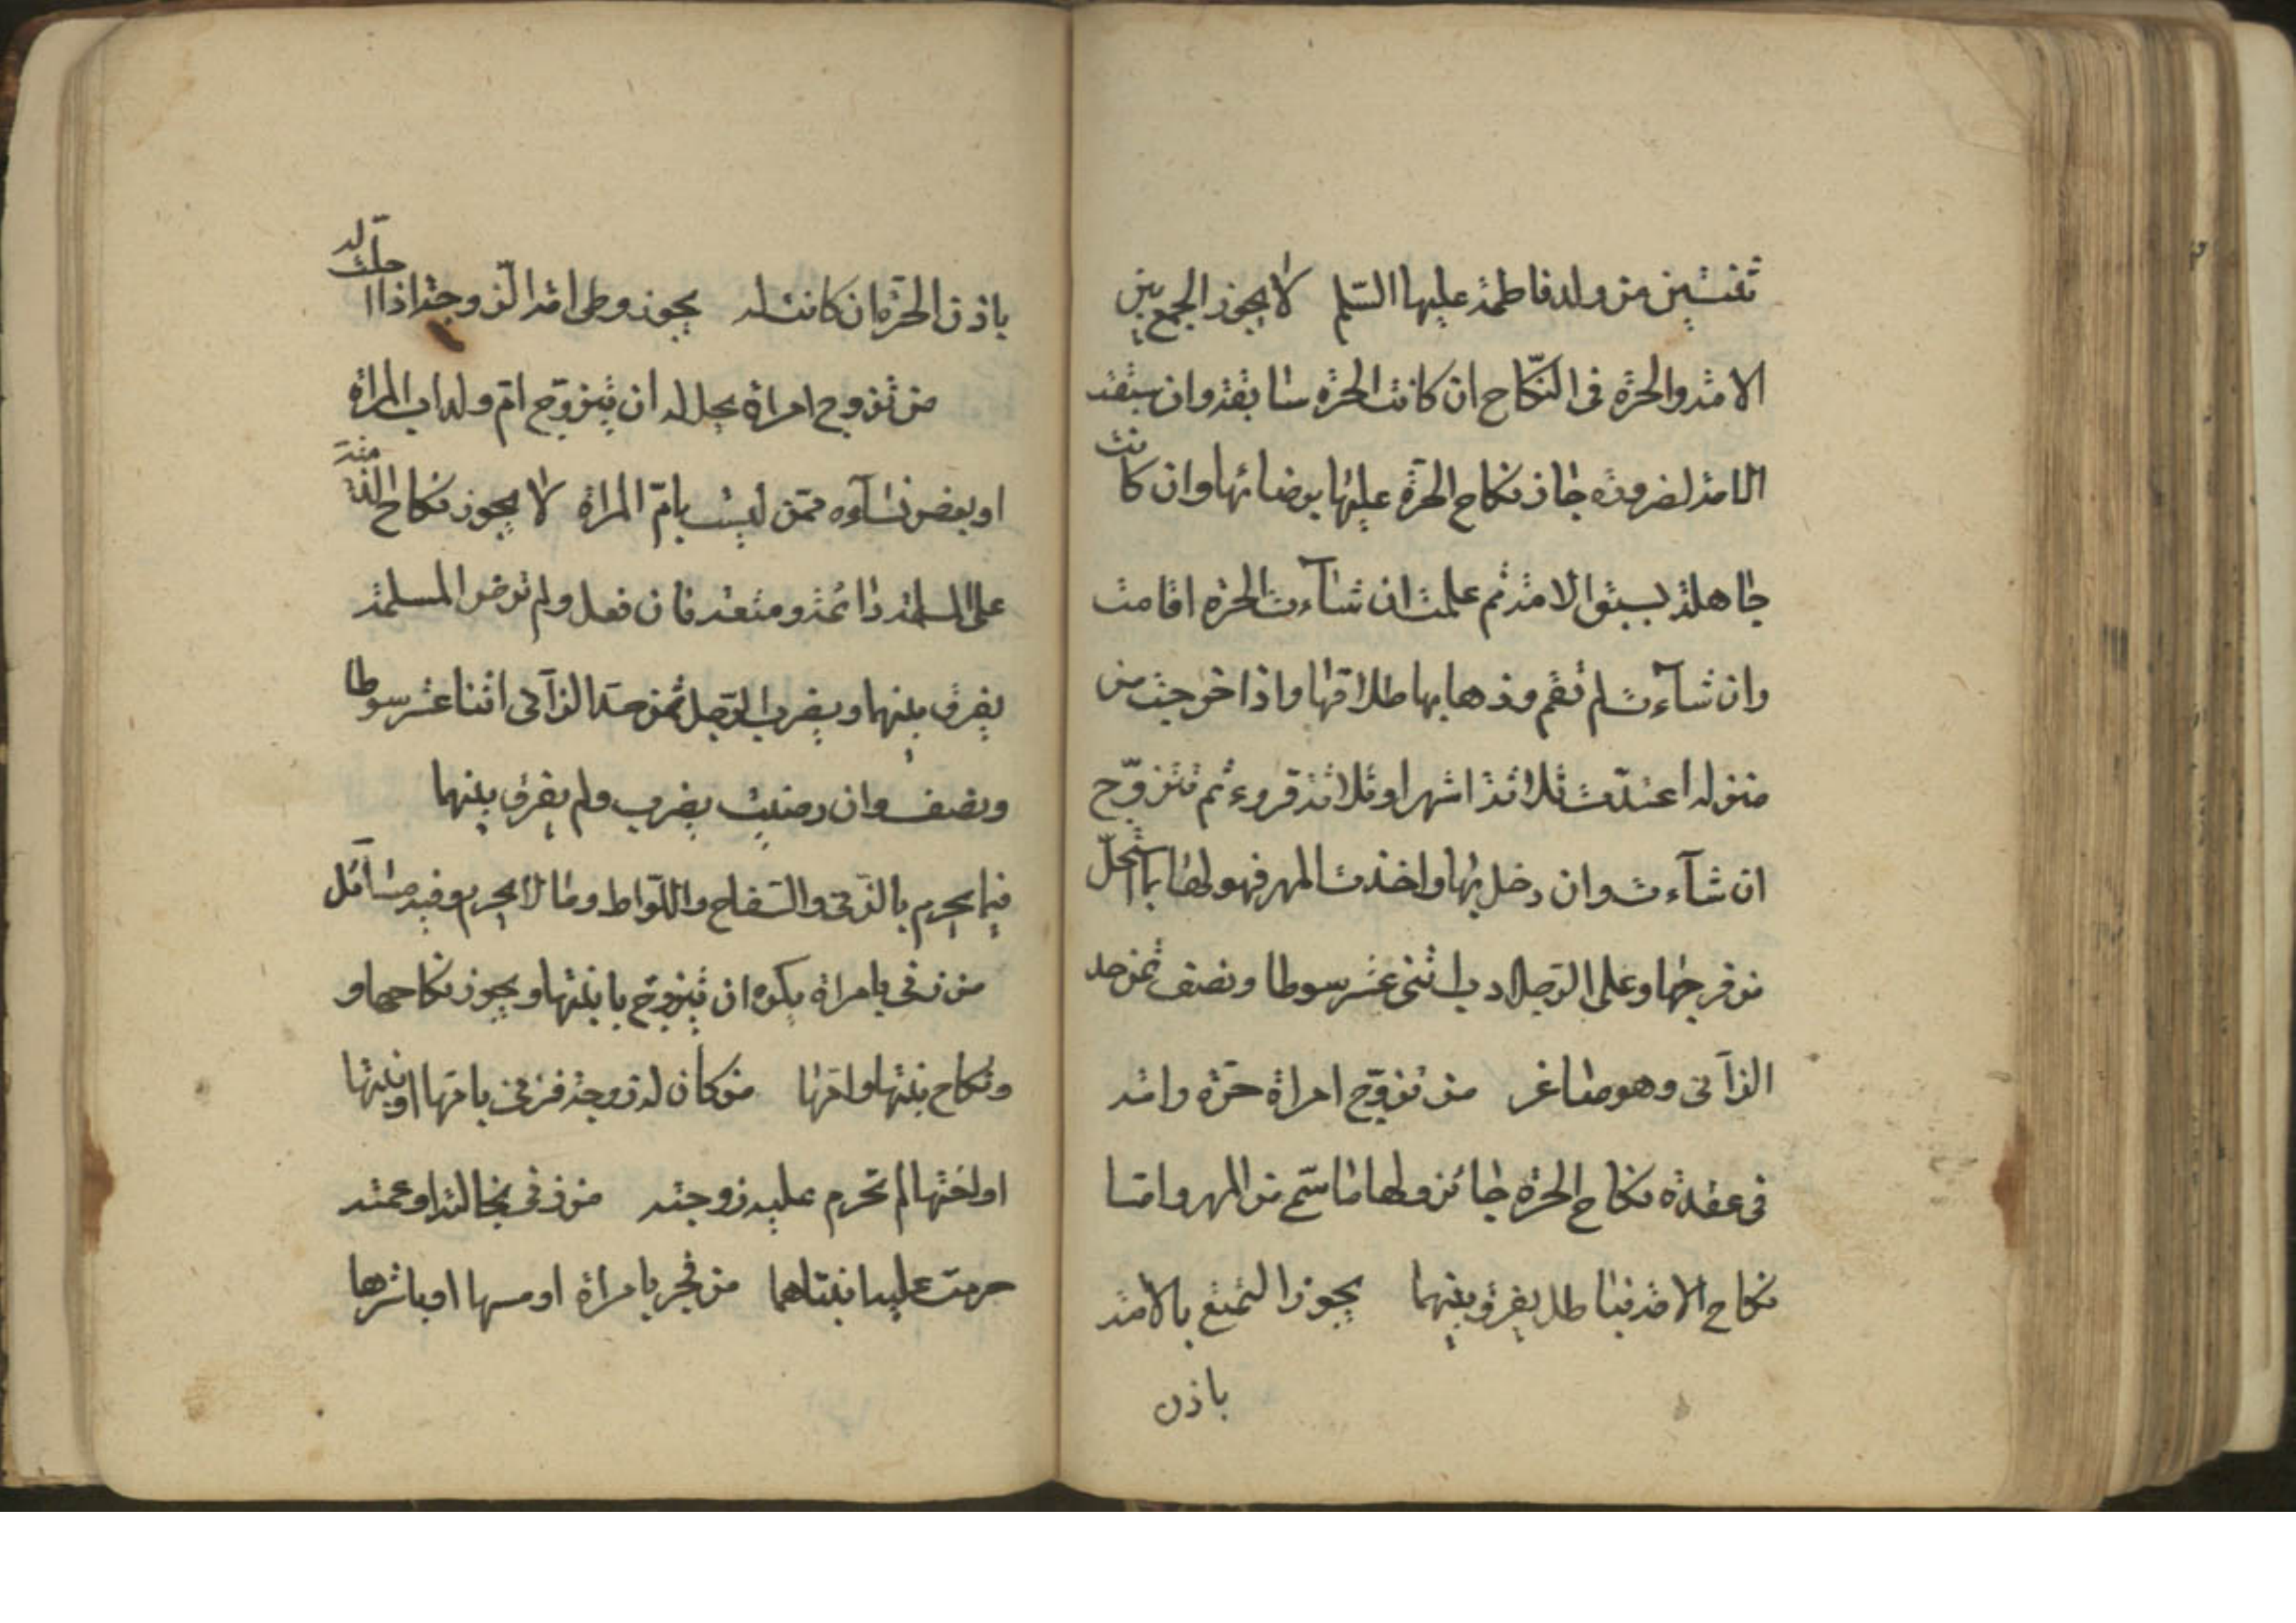 ثنتين من ولد فاطمة عليها السلم لا يجوز الجمع بين
الامة والحرة فى النكاح ان كانت الحرة سابقة وان سبقت
الامة لضرورة جاز نكاح الحرة عليها برضائها وان كانت
جاهلة بسبق الامة ثم علمت ان شآءت الحرة اقامت
وان شآءت لم تقم وذهابها طلاقها واذا خرجت من
منزله اعتدت ثلاثة اشهر او ثلاثة قروء ثم تتزوّج
ان شآءت وان دخل بها واخذت المهر فهو لها بما استحلّ
من فرجها وعلى الرجل ادب اثنى عشر سوطا ونصف ثمن حد
الزآنى وهو صاغر من تزوّج امراة حرّة وامة
فى عقدة نكاح الحرة جائز ولها ما سمّى من المهر وامّا
نكاح الامة فباطل يفرق بينهما يجوز التمتع بالامة
باذن
باذن الحرّة ان كانت له يجوز وطى امة الزوجة اذا احلّت له
من تزوج امراة يحل له ان يتزوّج امّ ولد اب المراة
او بعض نسآوه ممّن ليست بامّ المراة لا يجوز نكاح الذمّية
على المسلمة دائمة ومتعة فان فعل ولم ترض المسلمة
يفرق بينهما ويضرب الرّجل ثمن حدّ الزآنى اثنا عشر سوطا
ونصف وان رضيت يضرب ولم يفرق بينهما
فيما يحرم بالزّنى والسّفاح واللّواط وما لا يحرم وفيه مسآئل
من زنى بامراة يكره ان يتزوّج بابنتها ويجوز نكاحهما و
ونكاح بنتها وامّها من كان له زوجة فزنى بامّها او بنتها
او اختها لم تحرم عليه زوجته من زنى بخالته او عمته
حرمت عليه ابنتاهما من فجر بامراة او مسها او باشرها